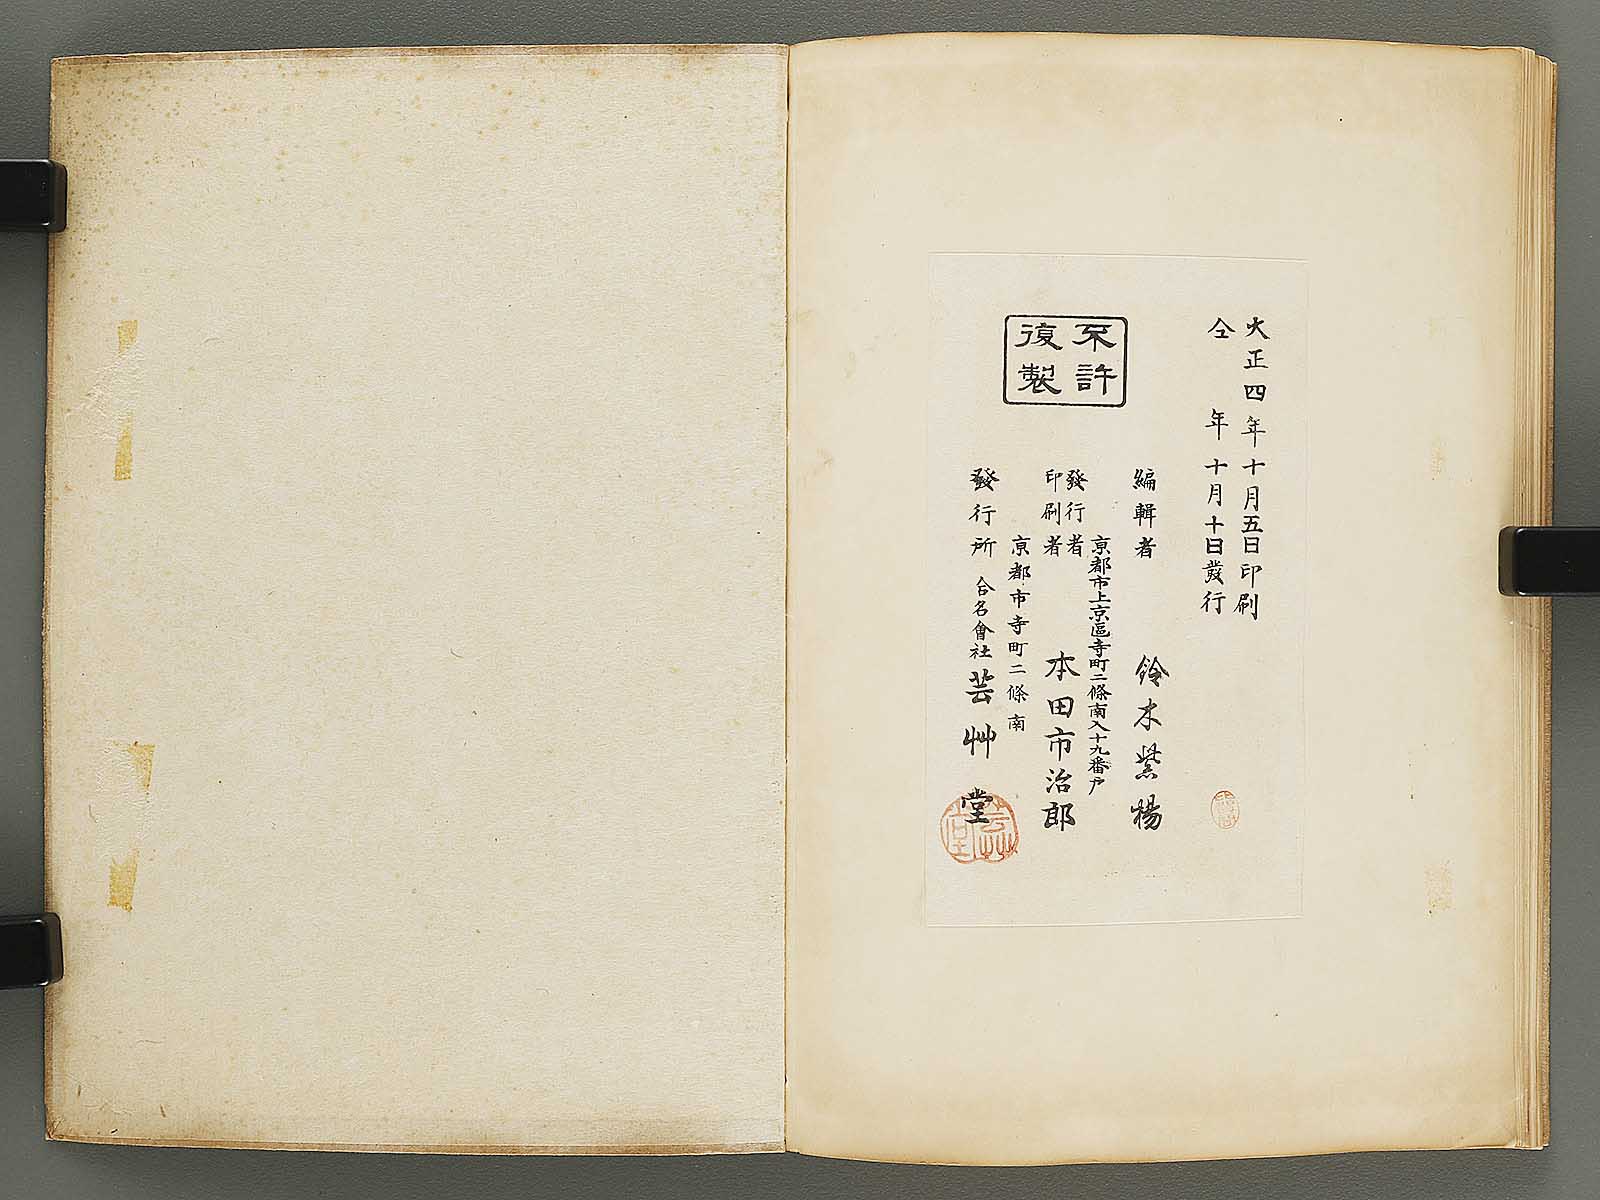 大正四年十月五日印刷
仝年十月十日發行
不許
復製
編輯者 鈴木紫楊
京都市上京區寺町二條南入十九番戸
發行者
印刷者 本田市治郎
京都市寺町二條南
發行所 合名會社 芸艸堂
芸艸堂